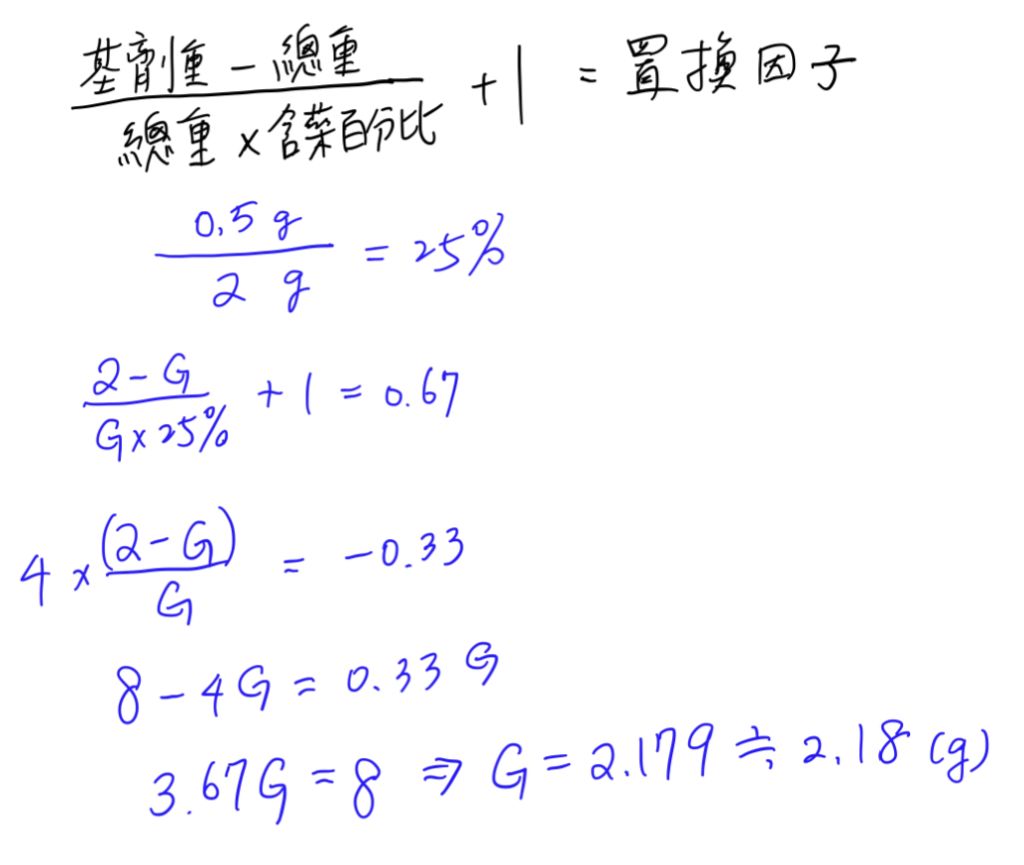 基劑重 - 總重 / 總重 × 含藥百分比 + 1 = 置換因子
0.5 g / 2 g = 25%
2 - G / G × 25% + 1 = 0.67
4 × (2 - G) / G = -0.33
8 - 4G = 0.33 G
3.67G = 8 ⇒ G = 2.179 ≒ 2.18 (g)